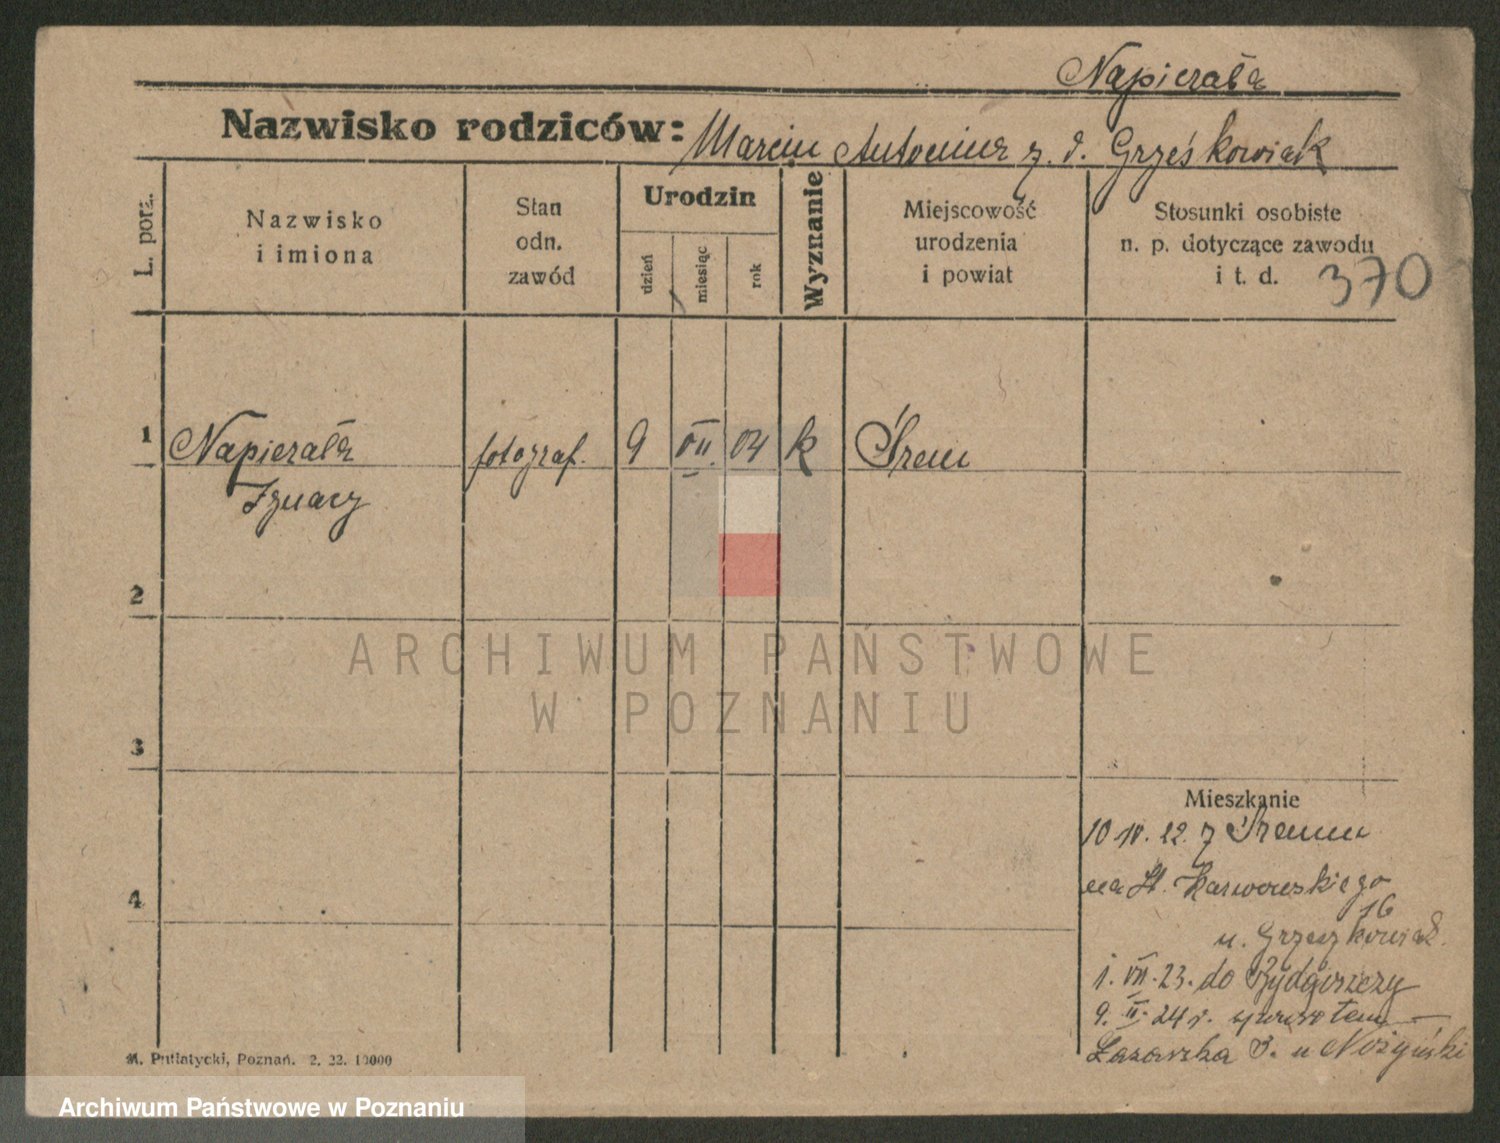 Napierała
Nazwisko rodziców: Marcin Antonina z d. Grześkowiak
L. porz.
Nazwisko
i imiona
Stan
odn.
zawód
Urodzin
dzień
miesiąc
rok
Wyznanie
Miejscowość
urodzenia
i powiat
Stosunki osobiste
n. p. dotyczące zawodu
i t. d.
370
1
Napierała
Ignacy
fotograf.
9
VII
04
k
Śrem
2
3
4
ARCHIWUM PAŃSTWOWE
W POZNANIU
Mieszkanie
10 IV. 22. z Śremu
na St. Karwowskiego
16
u. Grzeszkowiak.
1. VII. 23. do Bydgoszczy
9. II. 24 r. spowrotem
Łazarska 3. u
M. Putiatycki, Poznań. 2. 22. 10000
Archiwum Państwowe w Poznaniu